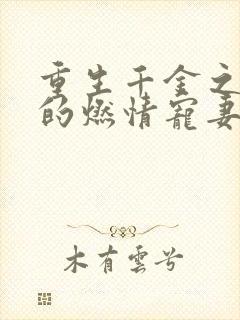 重生千金之
的燃情寵妻
木有雲兮